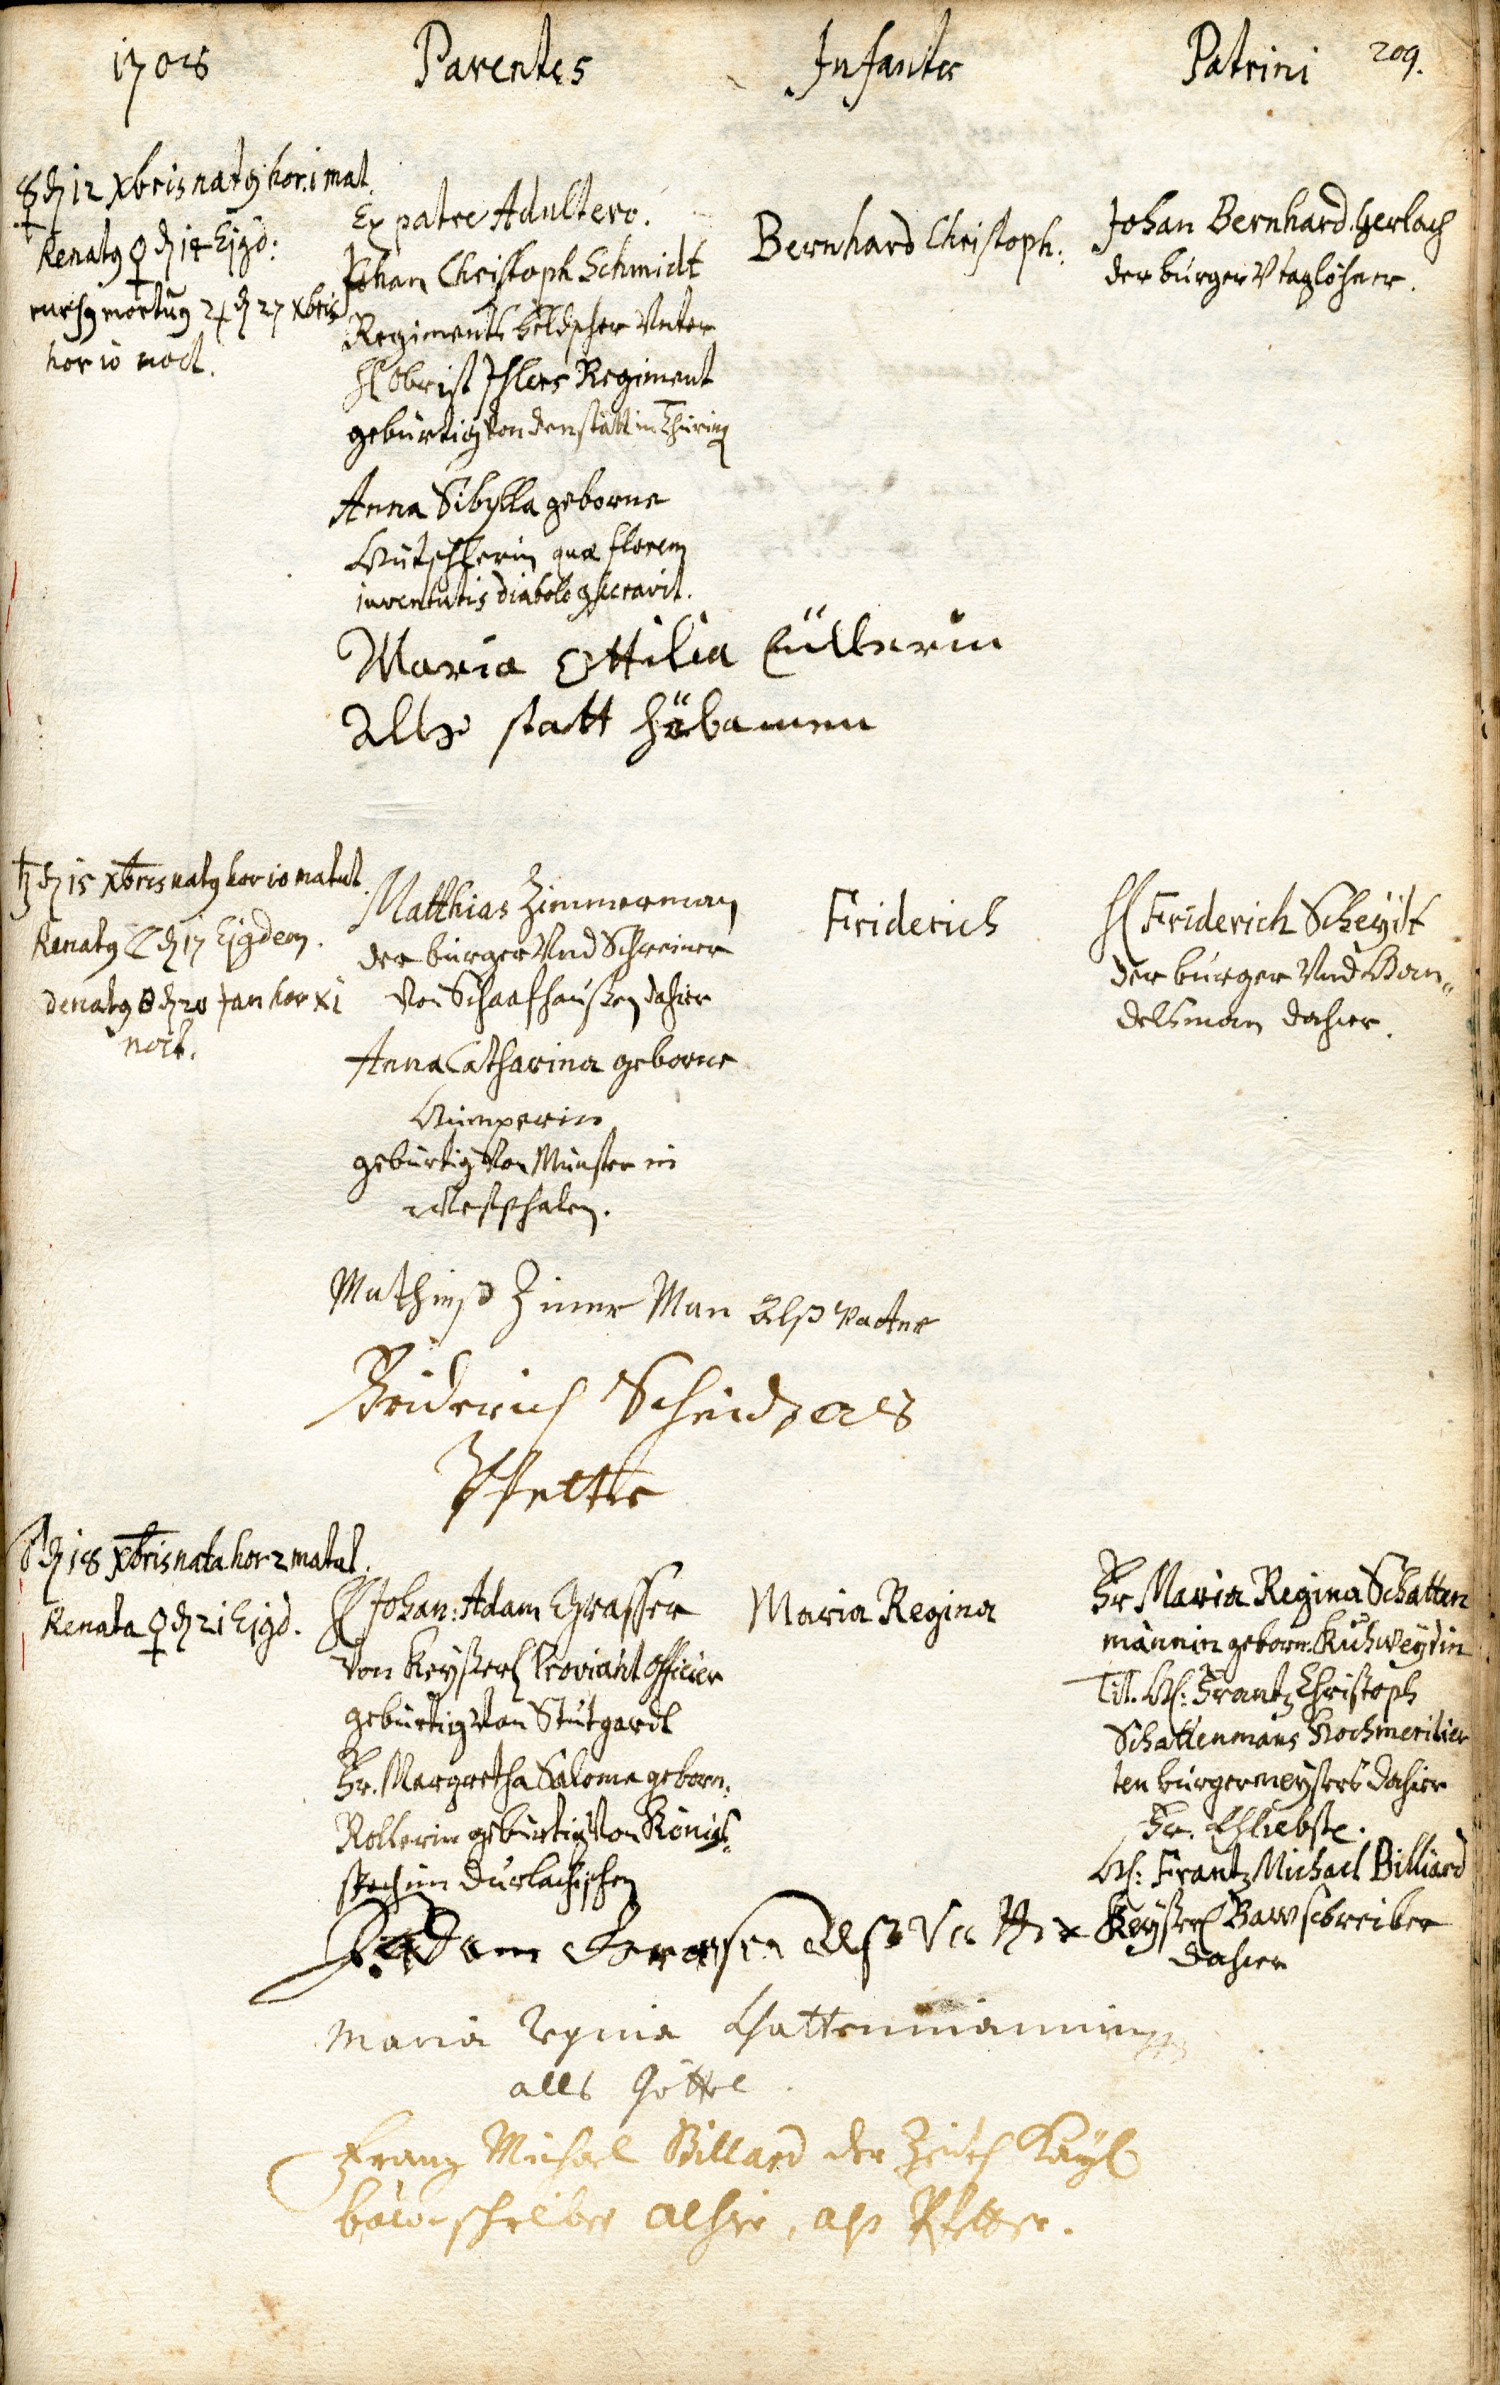 1708 Parentes Infantes Patrini 209.
☿ d 12 Xbris natg hor. i mat.
Renatg ♀ d 14 Ejgd:
rursg mortug ♃ d 27 Xbris
hor 10 noct.
Ex patre Adultero.
Johan Christoph Schmidt
Regiments feldscher Unter
H Obrist Ihlers Regiment
gebürtig von denstätt in Thüring
Anna Sibylla geborne
quæ florem
iuventutis diabolo gsecravit.
Bernhard Christoph.
Johan Bernhard Gerlach
der burger V taglöhner.
Maria Ottilia Cüllerin
Allß statt höbammen
♄ d 15 Xbris natg hor 10 matut.
Renatg ☾ d 17 Ejgdem.
denatg d 20 Jan hor XI
noct.
Matthias Zimmerman
der burger Und Schreiner
Von Schaafhaußen dahier
Anna Catharina geborne
Wimperin
gebürtig Von Münster in
Westphalen.
Friderich
H Friderich Scheydt
der burger Und Han„
delsman dahier.
Mathieß Zimer Man Alß Vatter
Friderich Scheid, als
Pfetter
♂ d 18 Xbris nata hor 2 matut.
Renata ♀ d 21 Ejgd.
H Johan: Adam Grasser
Von Keyßerl Proviant Officier
gebürtig Von Stutgardt
Fr. Margretha Salome geborn.
Rollerin gebürtig Von Königs„
bach im Durlachischen
Maria Regina
Fr Maria Regina Schatten
männin geborn: Kuhweydin
Tit. H: Frantz Christoph
Schattenmans Hochmeritier
ten burgermeysters dahier
Fr. Ehliebste.
H: Frantz Michael Billiard
Keyßerl Bawschreiber
dahier
J. Adam Grasser Alß Vatter
Maria Regina Schattenmännin
alls Göttel
Frantz Michael Billard der Zeith Kayl
bawschreiber Alhier, alß Pfetter.